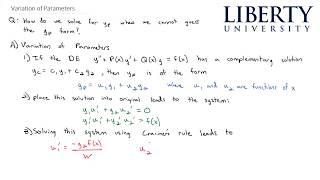 Variation of Parameters
LIBERTY
UNIVERSITY
Q: How do we solve for yp when we cannot guess
the yp form?
A) Variation of Parameters
1) If the DE y'' + P(x)y' + Q(x)y = f(x) has a complementary solution
yc = c₁y₁ + c₂y₂, then yp is of the form
yp = u₁y₁ + u₂y₂ where u₁ and u₂ are functions of x
2) place this solution into original leads to the system:
y₁u₁' + y₂u₂' = 0
y₁'u₁' + y₂'u₂' = f(x)
3) Solving this system using Cramer's rule leads to
u₁' = -y₂f(x)/W u₂'